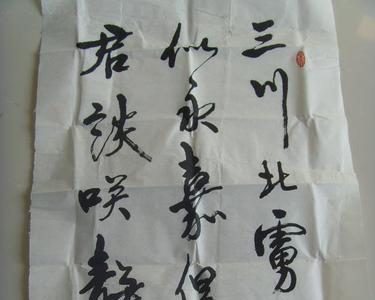 三川北虜
似永嘉但
君談咲靜